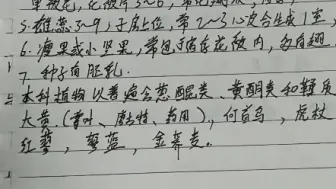 5. 雄蕊3~9，子房上位，常2~3心皮合生成1室
6. 瘦果或小坚果，常包于宿存花被内，多有翅.
7. 种子有胚乳.
本科植物以普遍含蒽醌类、黄酮类和鞣质
大黄（掌叶、唐古特、药用），何首乌，虎杖
红蓼，蓼蓝，金荞麦。